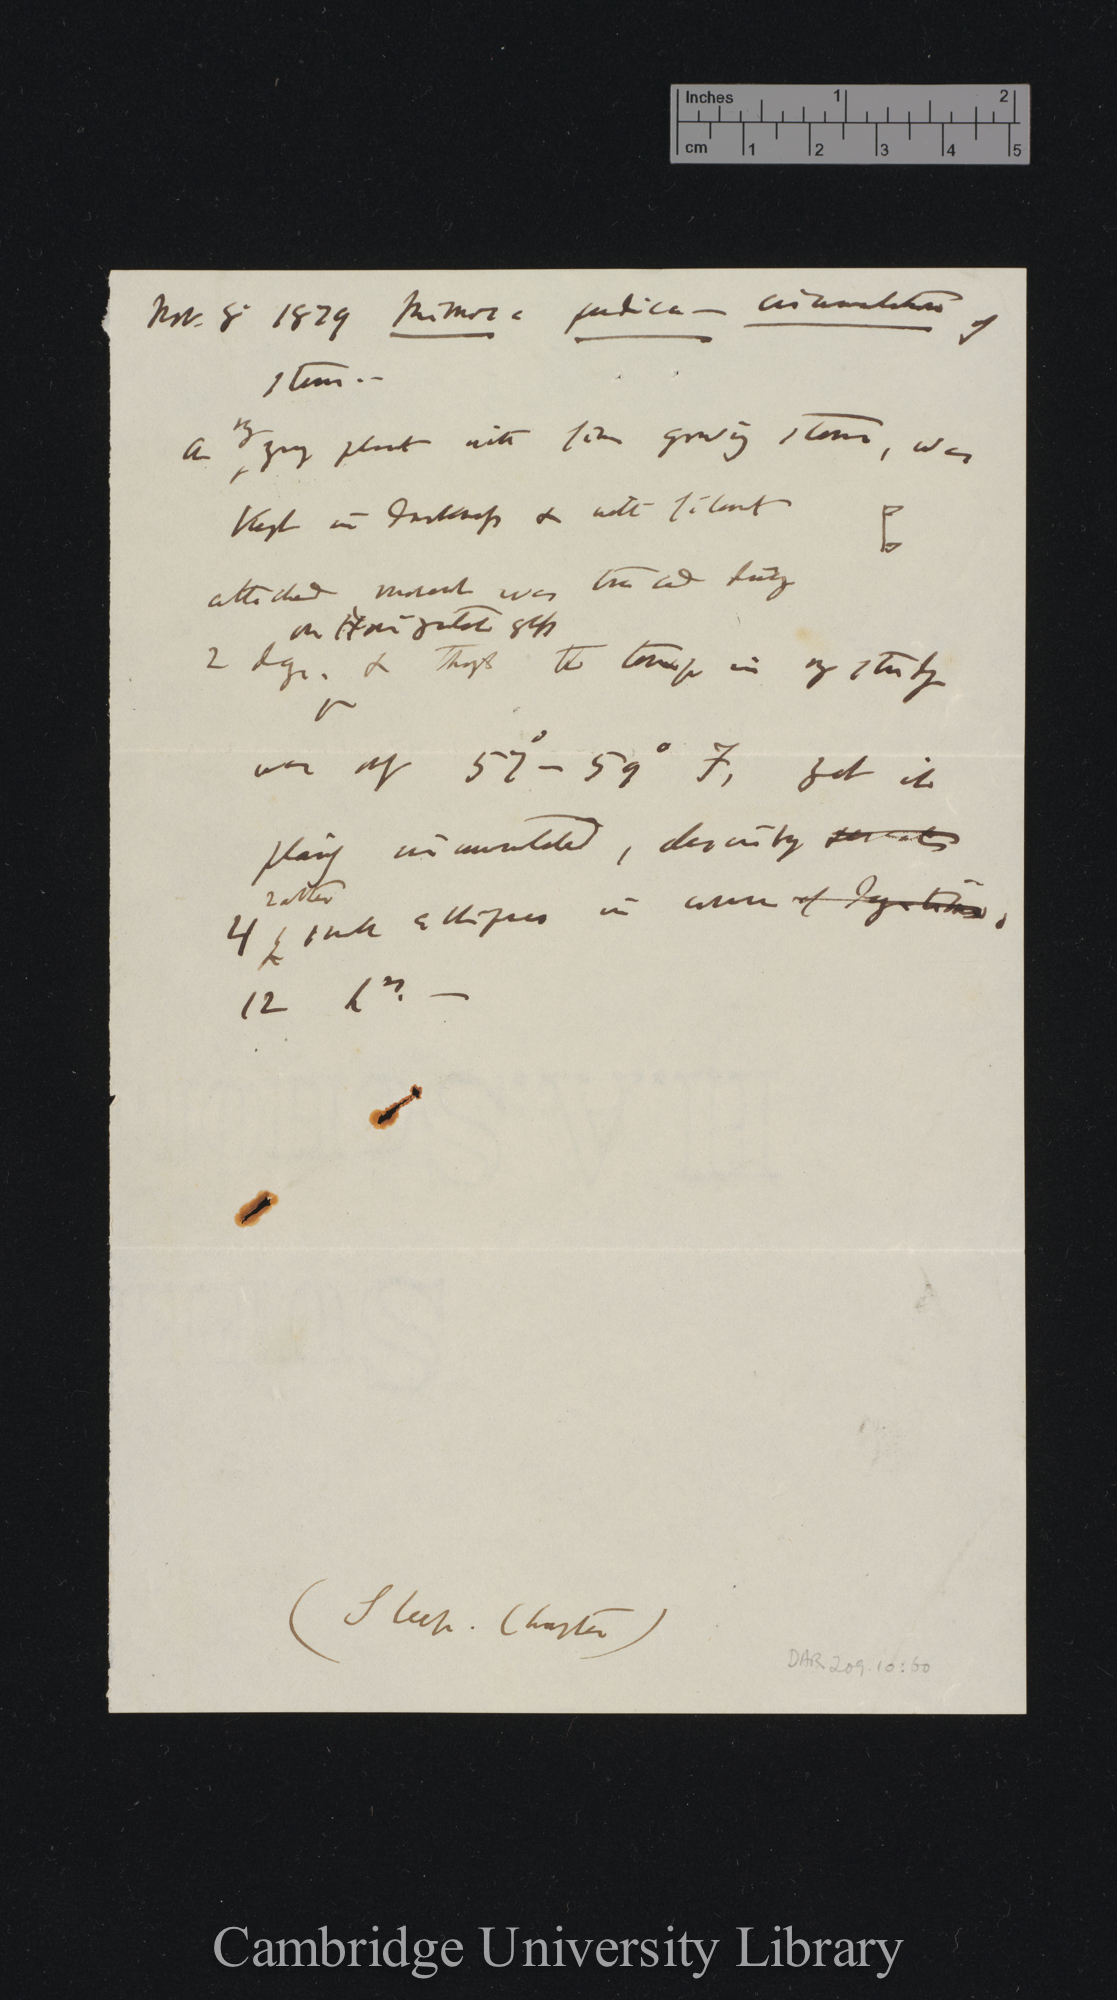 Inches 1 2
cm 1 2 3 4 5
Nov. 8 1879 Mimosa pudica — circumnutation of
stem. —
A
vy
young plant with fine growing stem, was
kept in darkness & with filament
attached movement was traced during
on Horizontal glass
2 days. & though the temp in my study
was only 57° — 59° F, yet it
plainly circumnutated, describing
rather
4 small ellipses in course of
12 h rs. —
(Sleep. Chapter)
DAR 209.10:60
Cambridge University Library